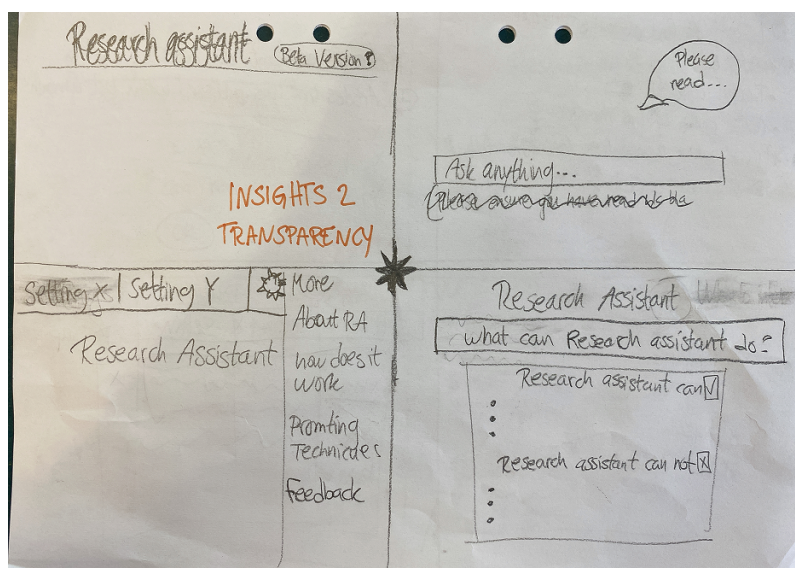 Research assistant
Beta Version
Please
read...
Ask anything...
INSIGHTS 2
TRANSPARENCY
Setting X | Setting Y
More
About RA
how does it
work
Promting
Feedback
Research Assistant
Research Assistant
What can Research assistant do?
Research assistant can
Research assistant can not